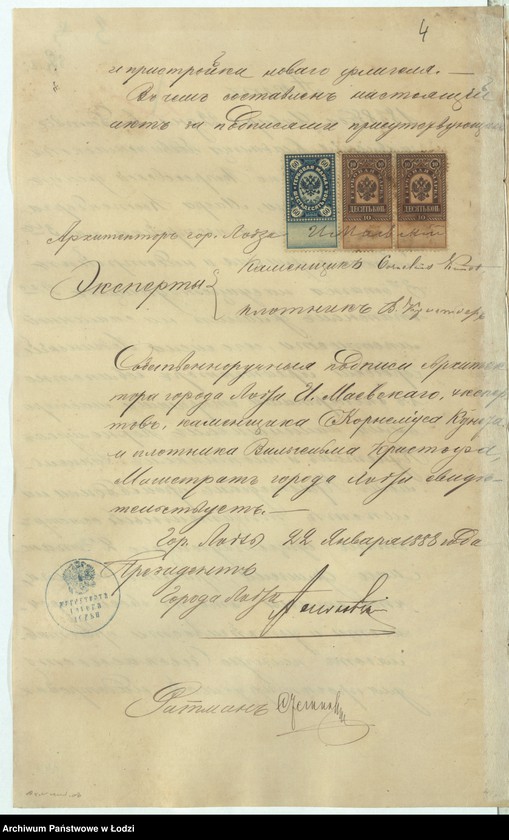 4
и пристройка новаго флигеля. —
Въ чемъ составленъ настоящій
актъ за подписями присутствующихъ
60
60
10
ДЕСЯТЬ КОП.
10
10
ДЕСЯТЬ КОП.
10
Архитекторъ гор. Лодзи И Маевскій
Каменщикъ
Эксперты
плотникъ В. Кристофъ
Собственноручныя подписи Архитек
тора города Лодзи И. Маевскаго, экспер
товъ, каменщика Корнелiуса
и плотника Вильгельма Кристофа,
Магистратъ города Лодзи свидѣ
тельствуетъ. —
Гор. Лодзь 22 Января 1883 года
Президентъ
Города Лодзи
Ратманъ
Archiwum Państwowe w Łodzi